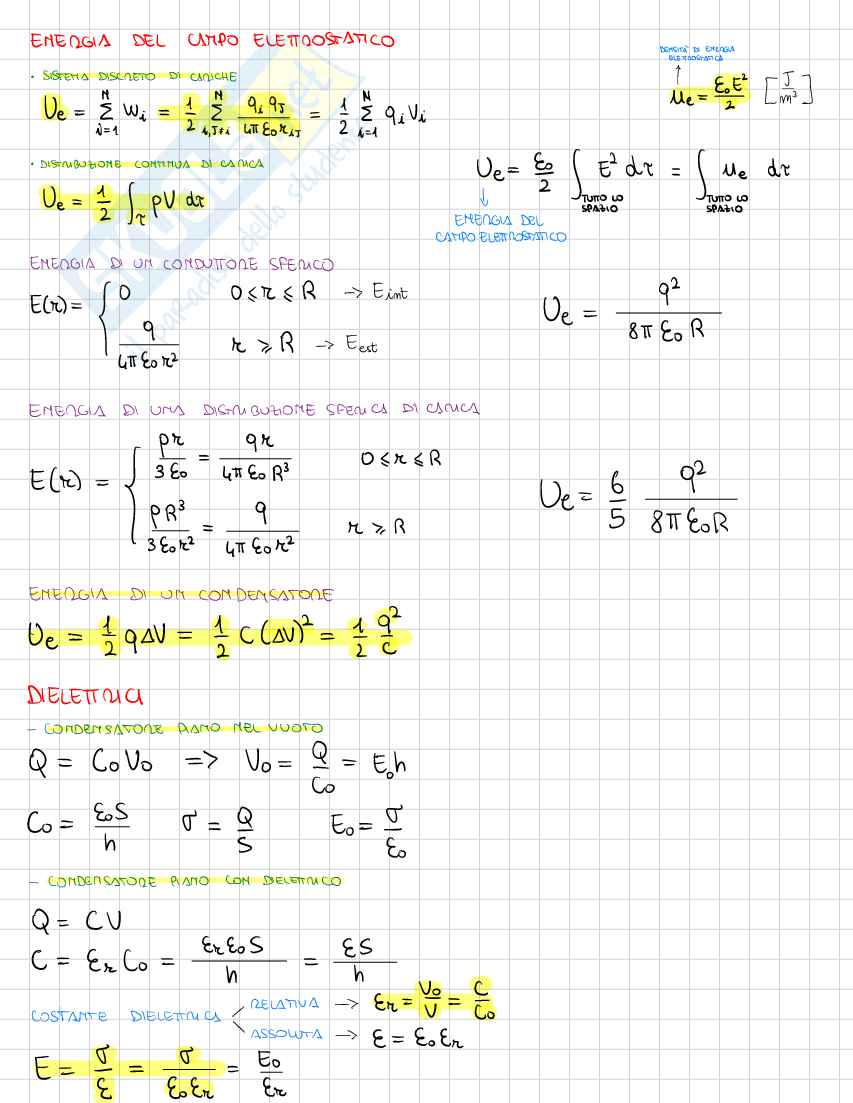 ENERGIA DEL CAMPO ELETTROSTATICO
• SISTEMA DISCRETO DI CARICHE
Ue = Σ_{i=1}^{N} Wi = 1/2 Σ_{i,J≠i}^{N} qi qJ / 4π ε0 r_{iJ} = 1/2 Σ_{i=1}^{N} qi Vi
DENSITÀ DI ENERGIA
ELETTROSTATICA
↑
ue = ε0 E² / 2 [J/m³]
• DISTRIBUZIONE CONTINUA DI CARICA
Ue = 1/2 ∫_τ ρV dτ
Ue = ε0/2 ∫_{TUTTO LO SPAZIO} E² dτ = ∫_{TUTTO LO SPAZIO} ue dτ
↓
ENERGIA DEL
CAMPO ELETTROSTATICO
ENERGIA DI UN CONDUTTORE SFERICO
E(r) = { 0 0 ⩽ r ⩽ R → Eint
q / 4π ε0 r² r ⩾ R → Eest
Ue = q² / 8π ε0 R
ENERGIA DI UNA DISTRIBUZIONE SFERICA DI CARICA
E(r) = { ρr / 3ε0 = qr / 4π ε0 R³ 0 ⩽ r ⩽ R
ρR³ / 3ε0 r² = q / 4π ε0 r² r ⩾ R
Ue = 6/5 q² / 8π ε0 R
ENERGIA DI UN CONDENSATORE
Ue = 1/2 qΔV = 1/2 C (ΔV)² = 1/2 q²/C
DIELETTRICI
– CONDENSATORE PIANO NEL VUOTO
Q = C0 V0 => V0 = Q/C0 = E0 h
C0 = ε0 S / h σ = Q/S E0 = σ/ε0
– CONDENSATORE PIANO CON DIELETTRICO
Q = CV
C = εr C0 = εr ε0 S / h = εS / h
COSTANTE DIELETTRICA
RELATIVA → εr = V0/V = C/C0
ASSOLUTA → ε = ε0 εr
E = σ/ε = σ / ε0 εr = E0/εr
SKUOLA.net
il paradiso dello studente